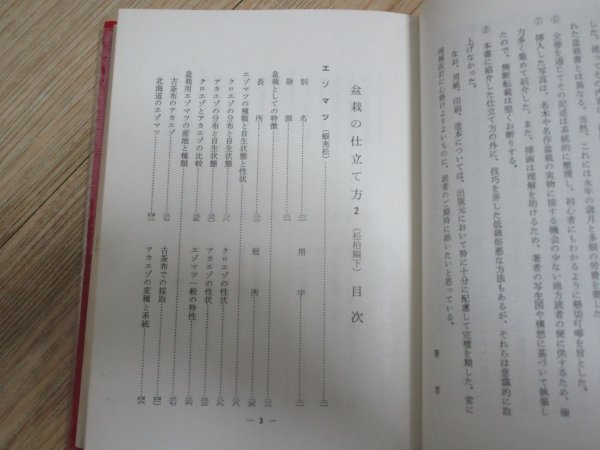 した。従って
た盆栽書とは異なる。当然、これには永年の歳月と多額の労費を費し
⑥ 全巻を通じてその記述は系統的に整理し、初心者にもわかるように懇切叮嚀を旨とした。
⑦ 挿入した写真は、名木や名作盆栽の実物に接する機会の少ない地方読者の便に供するため、極
力多く集めて紹介した。また、挿画は理解を助けるため、著者の写生図や構想に基づいて執筆し
たので、無断転載は堅くお断りする。
⑧ 本書に紹介した仕立て方の外に、技巧を弄した低級俗悪な方法もあるが、それらは意識的に取
上げなかった。
なお、用紙、印刷、造本については、出版元において特に十分に配慮して完璧を期した。常に
増補改訂に心掛けよりよいものに、読者のご期待に添いたいと思っている。
著者
盆栽の仕立て方 2 (松柏編下) 目次
エゾマツ(蝦夷松)
別名
用字
語源
盆栽としての特徴
長所
短所
エゾマツの種類と自生状態と性状
クロエゾの分布と自生状態
クロエゾの性状
アカエゾの分布と自生状態
アカエゾの性状
クロエゾとアカエゾの比較
エゾマツ一般の特性
盆栽用エゾマツの産地と種類
古釜布のアカエゾ
古釜布での採取
北海道のエゾマツ
アカエゾの変種と系統
— 3 —